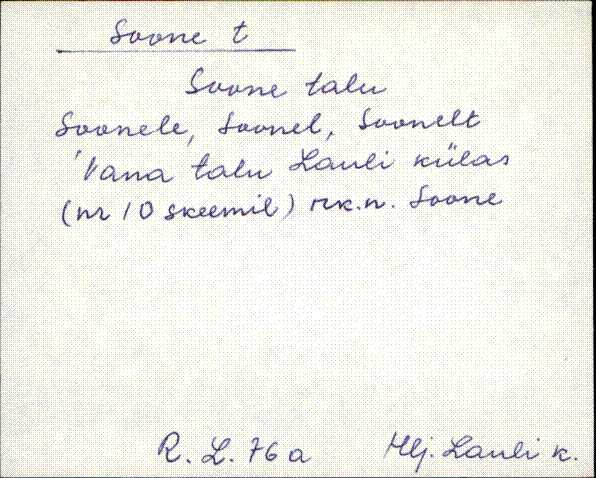 Soone t
Soone talu
Soonele, Soonel, Soonelt
Vana talu Lauli külas
(nr 10 skeemil) rk.n. Soone
R. L. 76 a Hlj. Lauli k.